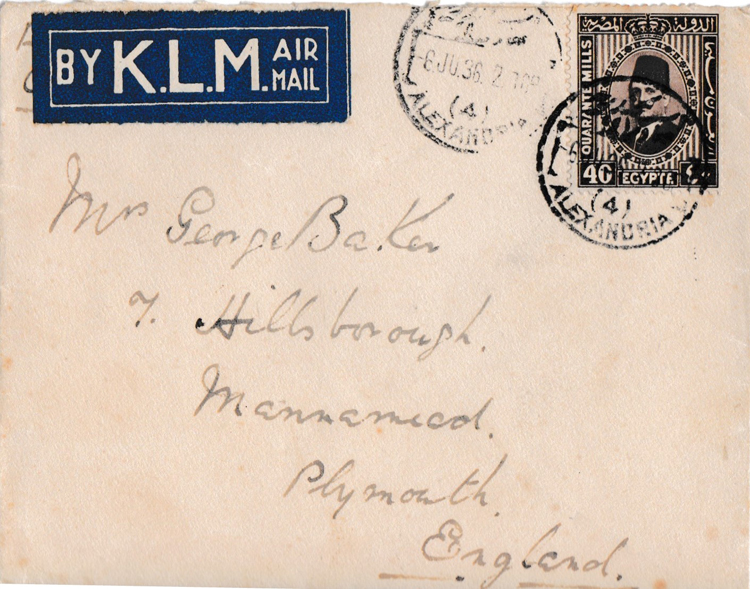 BY K.L.M. AIR MAIL
6.JU.36. 2
(4)
ALEXANDRIA
الدولة المصرية
QUARANTE MILLS
40 EGYPTE ٤٠
(4)
ALEXANDRIA
Mrs George Baker
7. Hillsborough.
Mannamead.
Plymouth.
England.